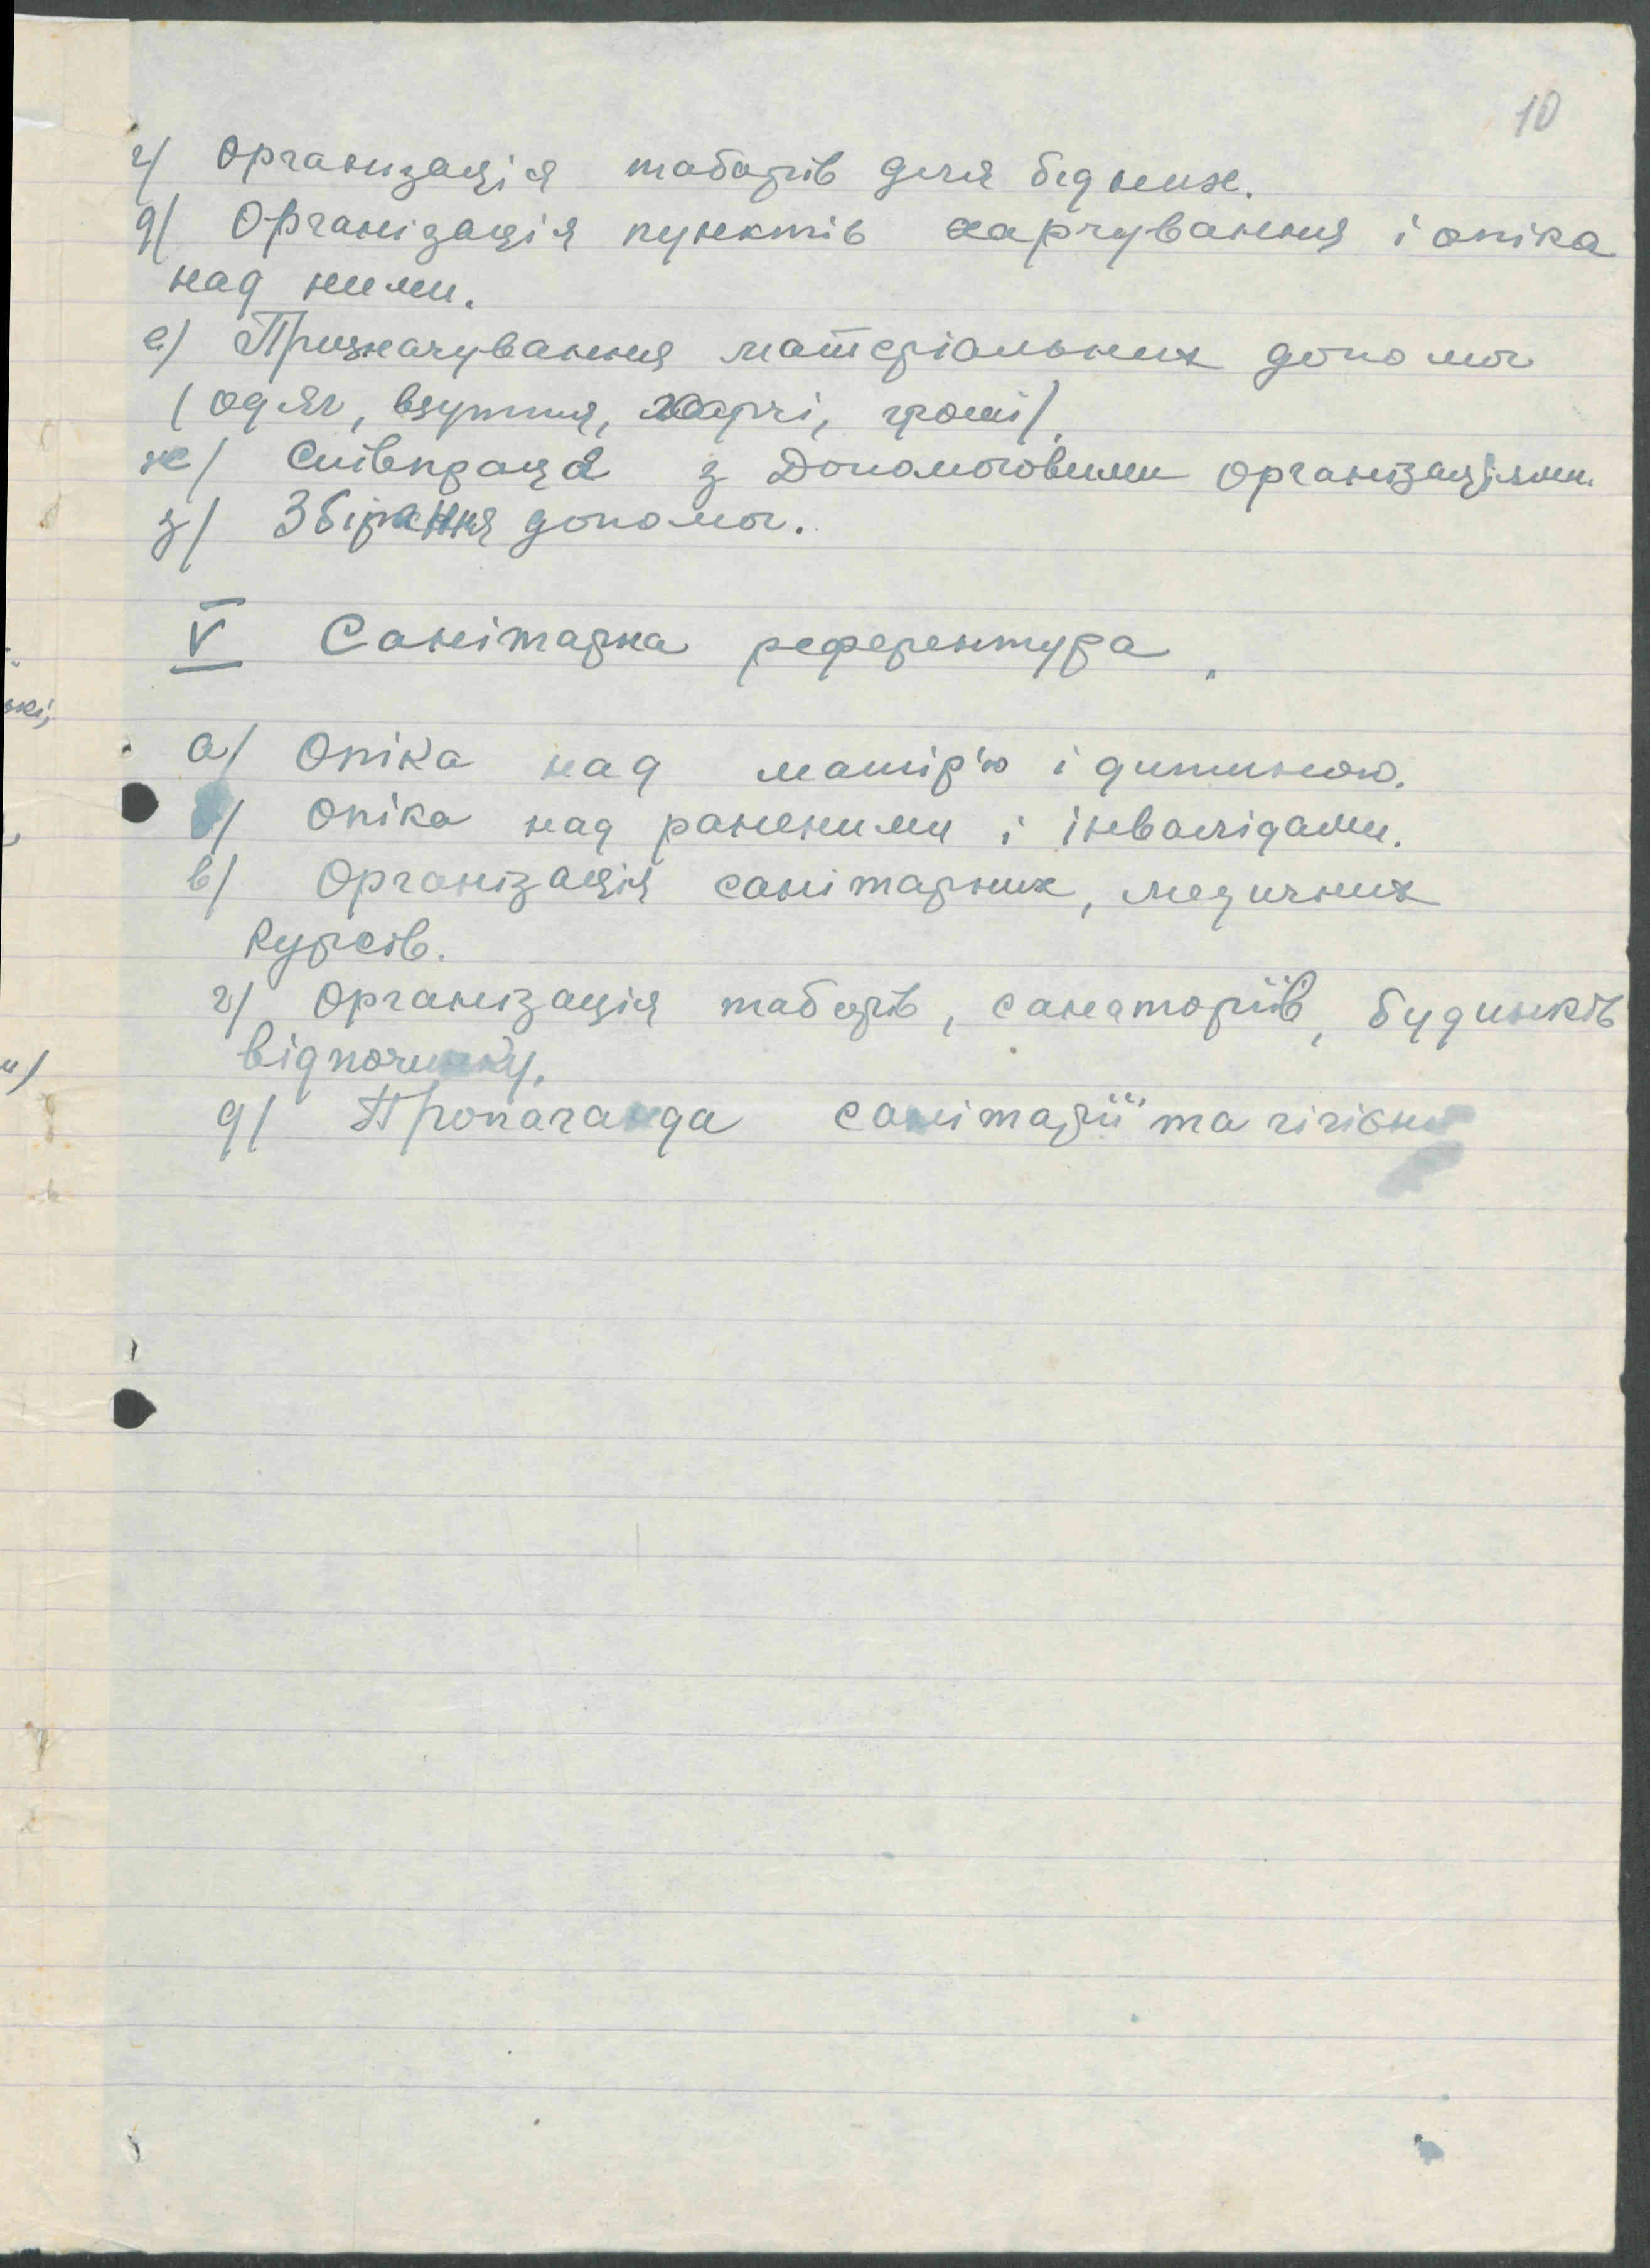 10
г/ Організація таборів для бідних.
д/ Організація пунктів харчування і опіка
над ними.
е/ Призначування матеріальних допомог
/одяг, взуття, харчі, гроші/.
ж/ Співпраця з Допомоговими Організаціями.
з/ Збірання допомог.
V Санітарна референтура.
а/ Опіка над матір'ю і дитиною.
б/ Опіка над раненими і інвалідами.
в/ Організація санітарних, медичних
курсів.
г/ Організація таборів, санаторіїв, будинків
відпочинку.
д/ Пропаганда санітарії та гігієни